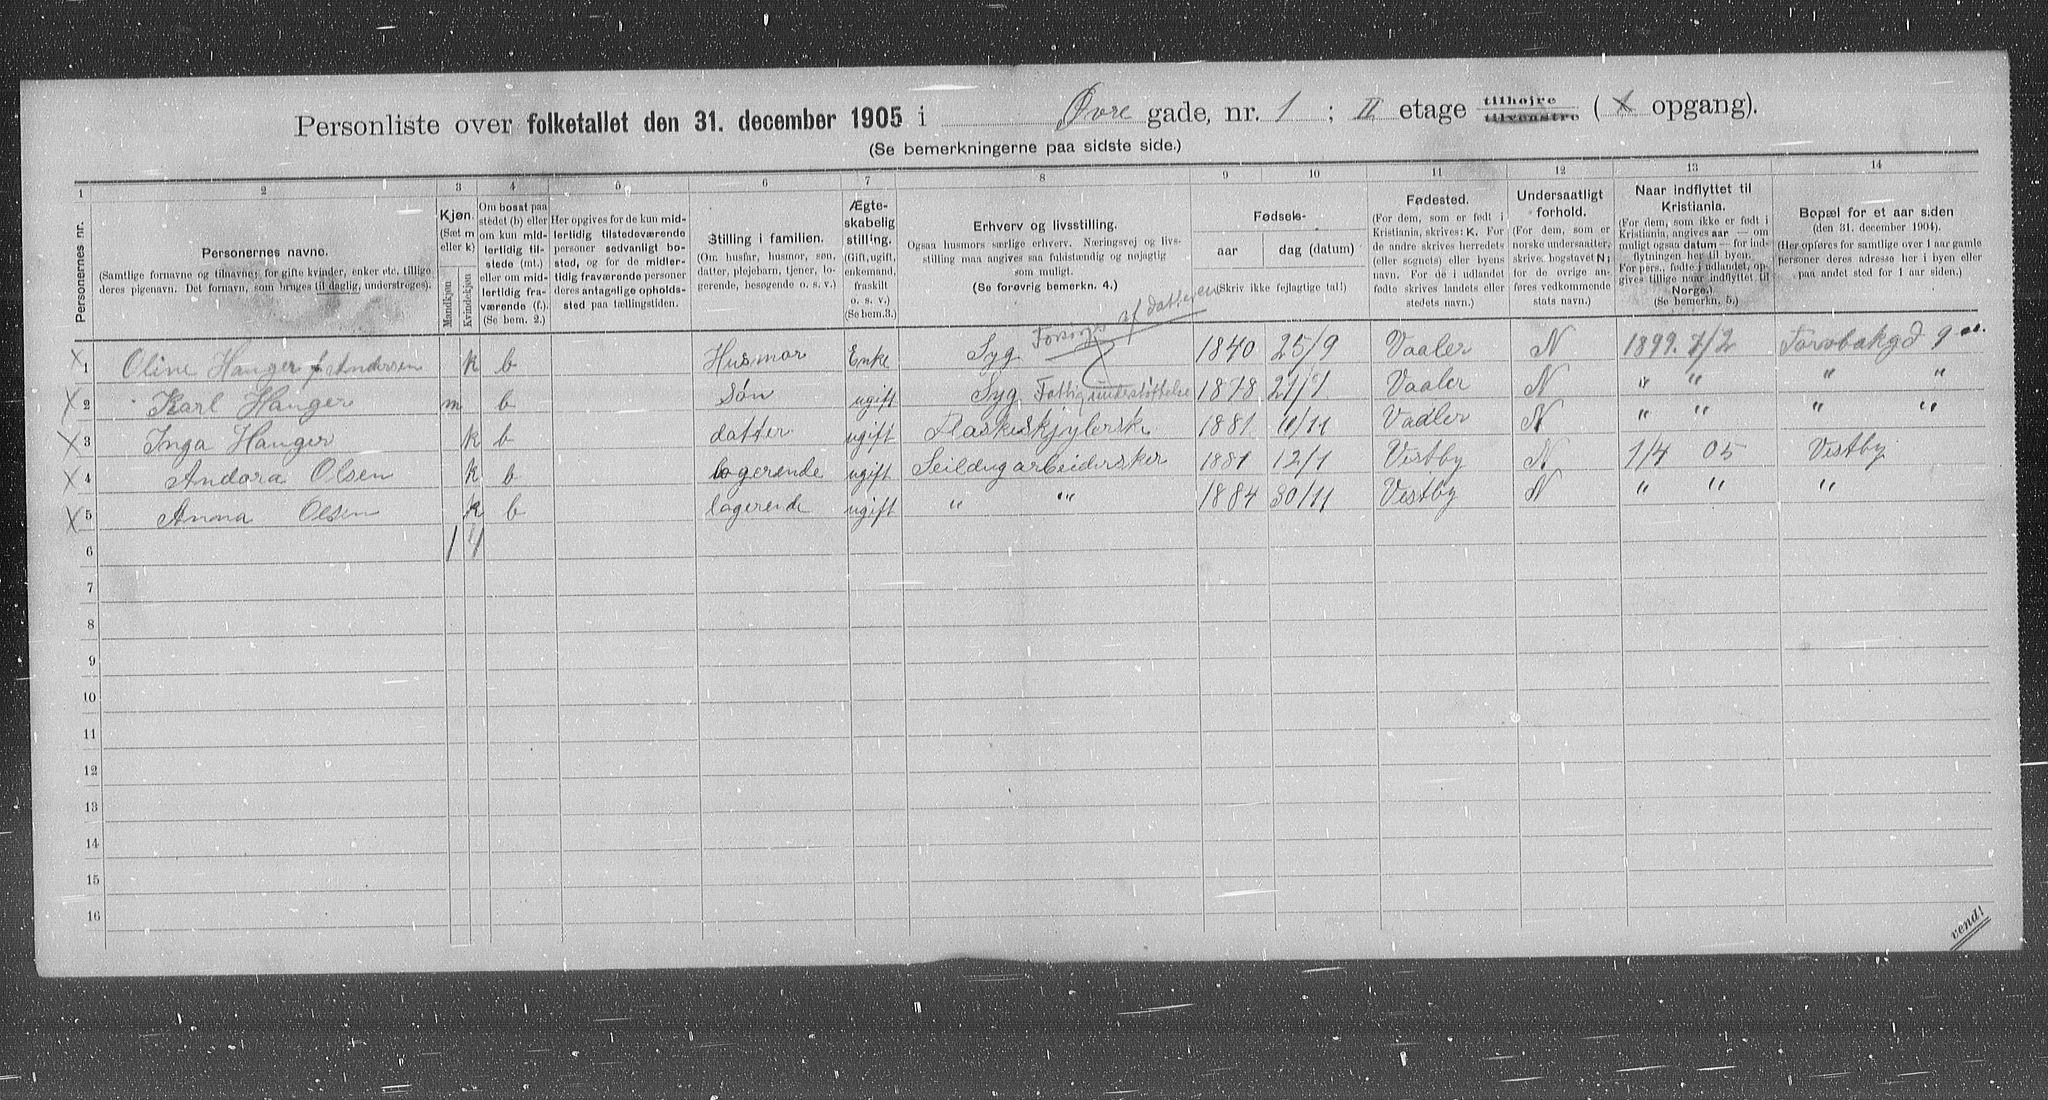 Personliste over folketallet den 31. december 1905 i Øvre gade, nr. 1 ; II etage tilhøjre tilvenstre ( X opgang).
(Se bemerkningerne paa sidste side.)
1 2 3 4 5 6 7 8 9 10 11 12 13 14
Personernes nr.
Personernes navne.
(Samtlige fornavne og tilnavne; for gifte kvinder, enker etc. tillige deres pigenavn. Det fornavn, som bruges til daglig, understreges).
Kjøn.
(Sæt m eller k)
Mandkjøn
Kvindekjøn
Om bosat paa stedet (b) eller om kun midlertidig tilstede (mt.) eller om midlertidig fraværende (f.).
(Se bem. 2.)
Her opgives for de kun midlertidig tilstedeværende personer sedvanligt bosted, og for de midlertidig fraværende personer deres antagelige opholdssted paa tællingstiden.
Stilling i familien.
(Om husfar, husmor, søn, datter, plejebarn, tjener, logerende, besøgende o. s. v.)
Ægteskabelig stilling.
(Gift, ugift, enkemand, fraskilt o. s. v.)
(Se bem. 3.)
Erhverv og livsstilling.
Ogsaa husmors særlige erhverv. Næringsvej og livsstilling maa angives saa fuldstændig og nøjagtig som muligt.
(Se forøvrig bemerkn. 4.)
Fødsels-
aar dag (datum)
(Skriv ikke fejlagtige tal!)
Fødested.
(For dem, som er født i Kristiania, skrives: K. For de andre skrives herredets (eller sognets) eller byens navn. For de i udlandet fødte skrives landets eller stedets navn.)
Undersaatligt forhold.
(For dem, som er norske undersaatter, skrive bogstavet N; for de øvrige anføres vedkommende stats navn.)
Naar indflyttet til Kristiania.
(For dem, som ikke er født i Kristiania, angives aar — om muligt ogsaa datum — for indflytningen her til byen. For pers., fødte i udlandet, opgives tillige naar indflyttet til Norge.)
(Se bemerkn. 5.)
Bopæl for et aar siden
(den 31. december 1904).
(Her opføres for samtlige over 1 aar gamle personer deres adresse her i byen eller paa andet sted for 1 aar siden.)
X 1 Oline Hanger f Andersen k b Husmor Enke Syg Forsørges af datteren 1840 25/9 Vaaler N 1899. 7/2 9
X 2 Karl Hanger m b Søn ugift Syg Fattigunderstøttelse 1878 21/7 Vaaler N " " " "
X 3 Inga Hanger k b datter ugift Flaskeskjylerske 1881 11/11 Vaaler N " " " "
X 4 Andora Olsen k b logerende ugift Seildugarbeidersker 1881 12/1 Vestby N 1/4 05 Vestby
X 5 Anna Olsen k b logerende ugift " " 1884 30/11 Vestby N " " "
6 1 4
7
8
9
10
11
12
13
14
15
16
vend!